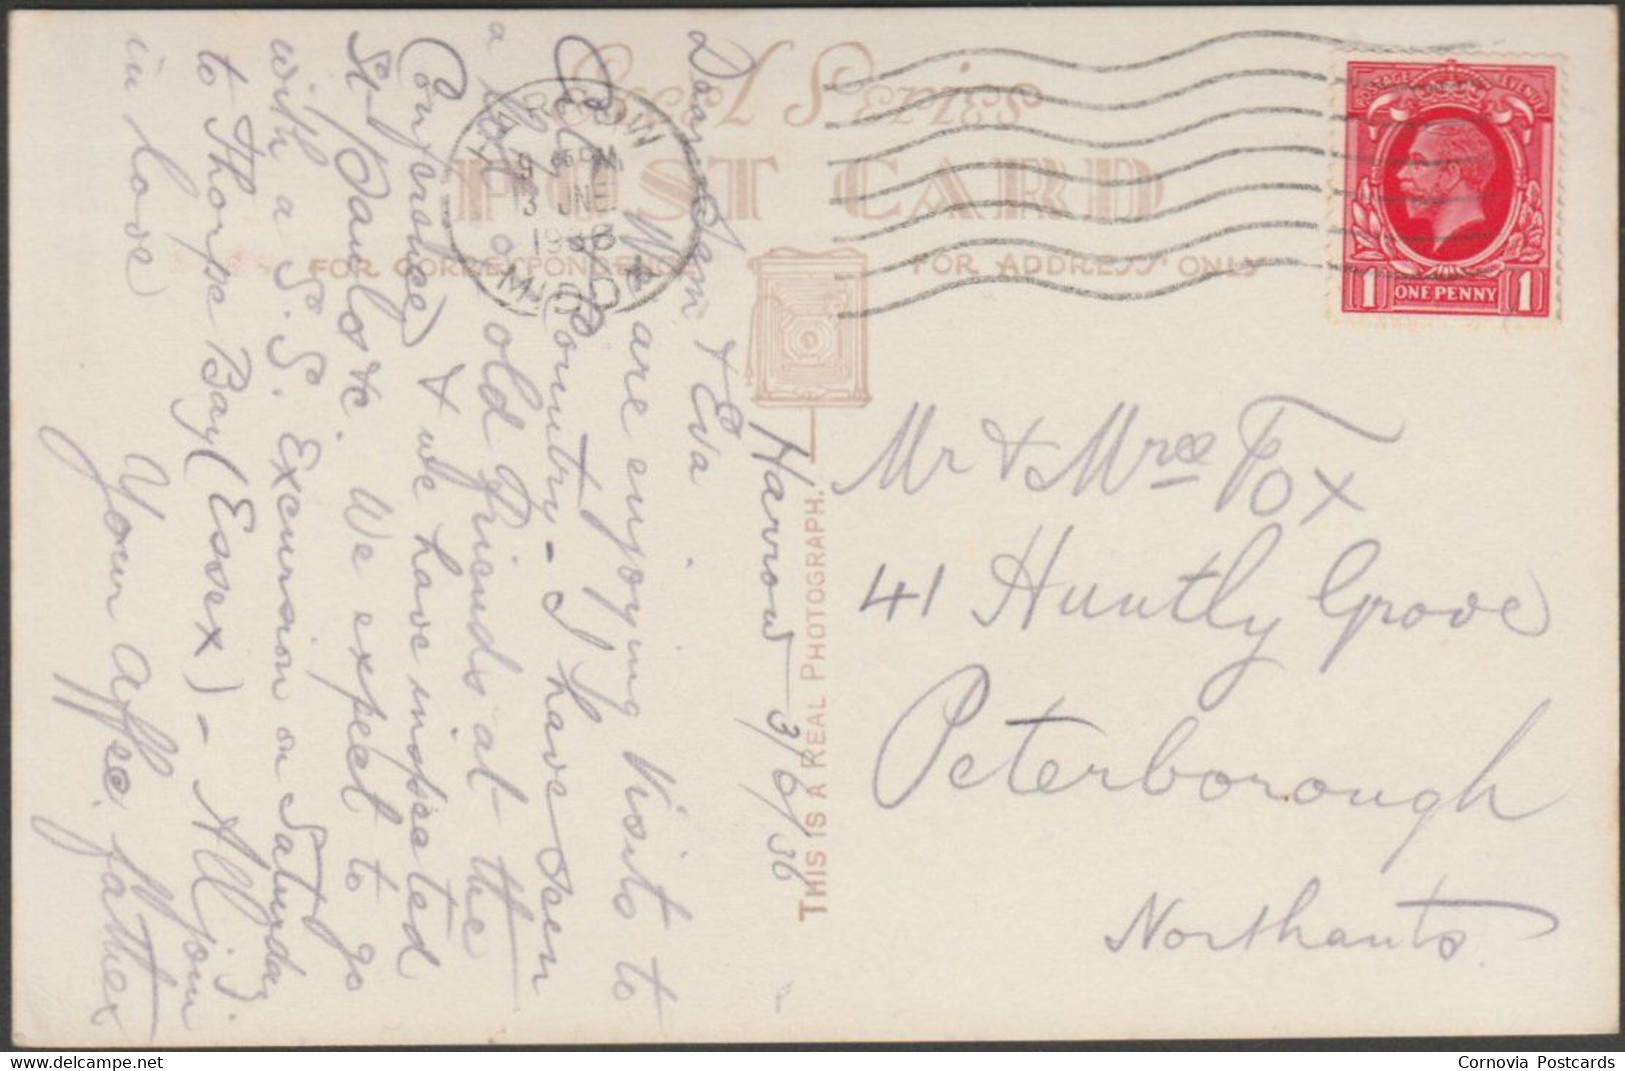 Excel Series
POST CARD
FOR CORRESPONDENCE
FOR ADDRESS ONLY
HARROW
9 45 PM
3 JNE
1936
MIDDX
POSTAGE REVENUE
1 ONE PENNY 1
THIS IS A REAL PHOTOGRAPH.
Harrow 3/6/36
Dear Sam & Eva.
We are enjoying Visits to
Country - I have seen
a lot of old friends at the
Conference) & we have inspected
St Pauls &c. We expect to go
with a S.S. Excursion on Saturday
to Thorpe Bay (Essex) - All join
in love
Your Affec. father
Mr & Mrs Fox
41 Huntly Grove
Peterborough
Northants
Cornovia Postcards